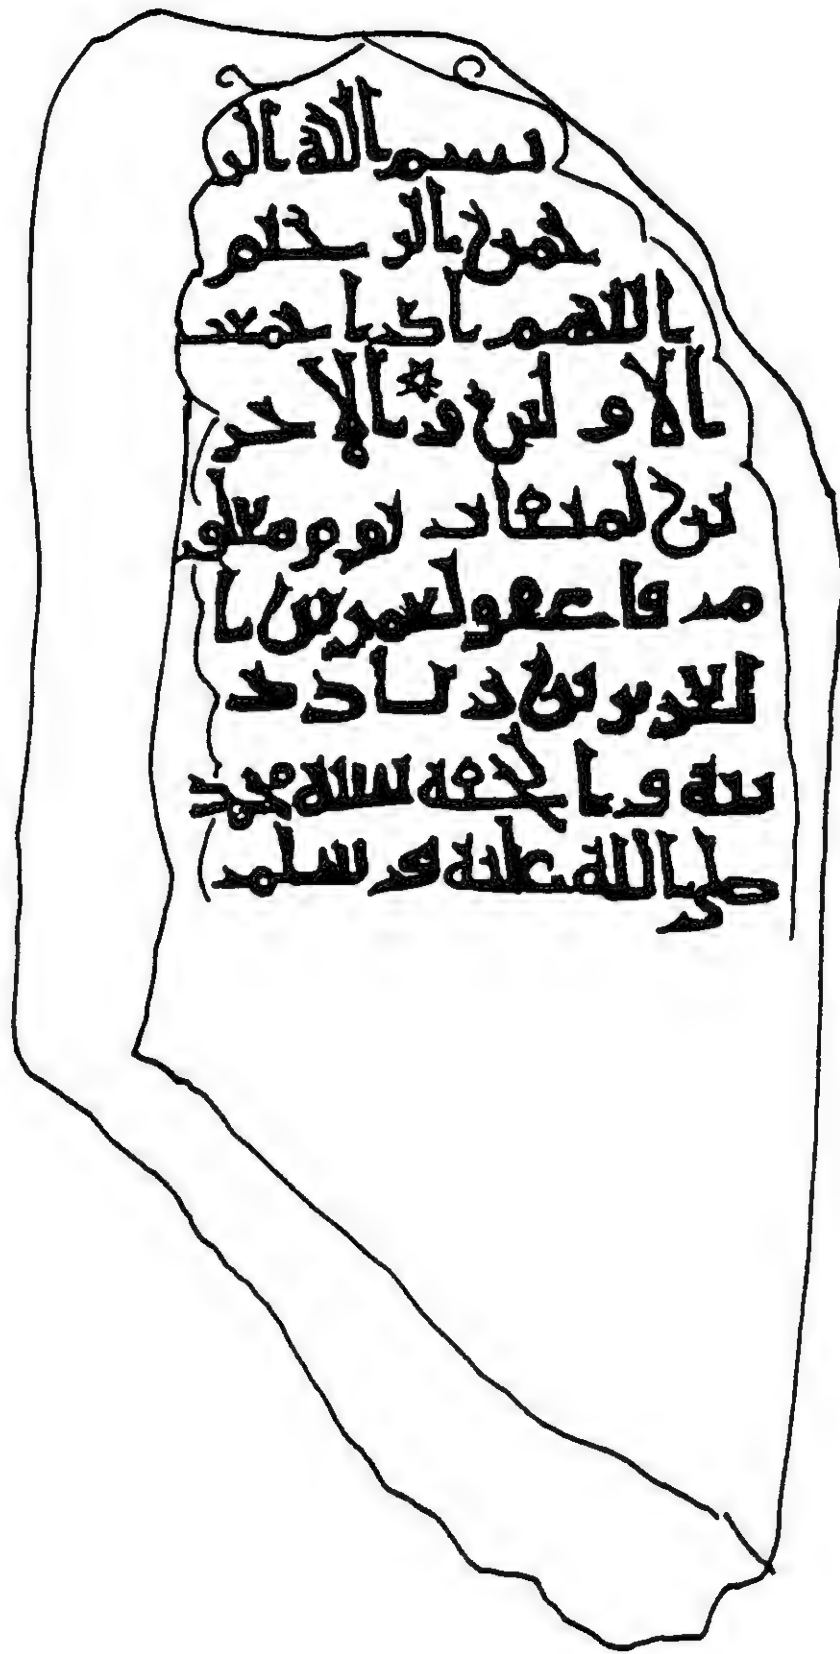 بسم الله الر
حمن الرحيم
اللهم اذا جمعت
الاولين والاخر
ين لميقات يوم معلو
م فاغفر لعمر بن ا
لعزيز بن
وا لحقه بنبيه محمد
صلى الله عليه وسلم